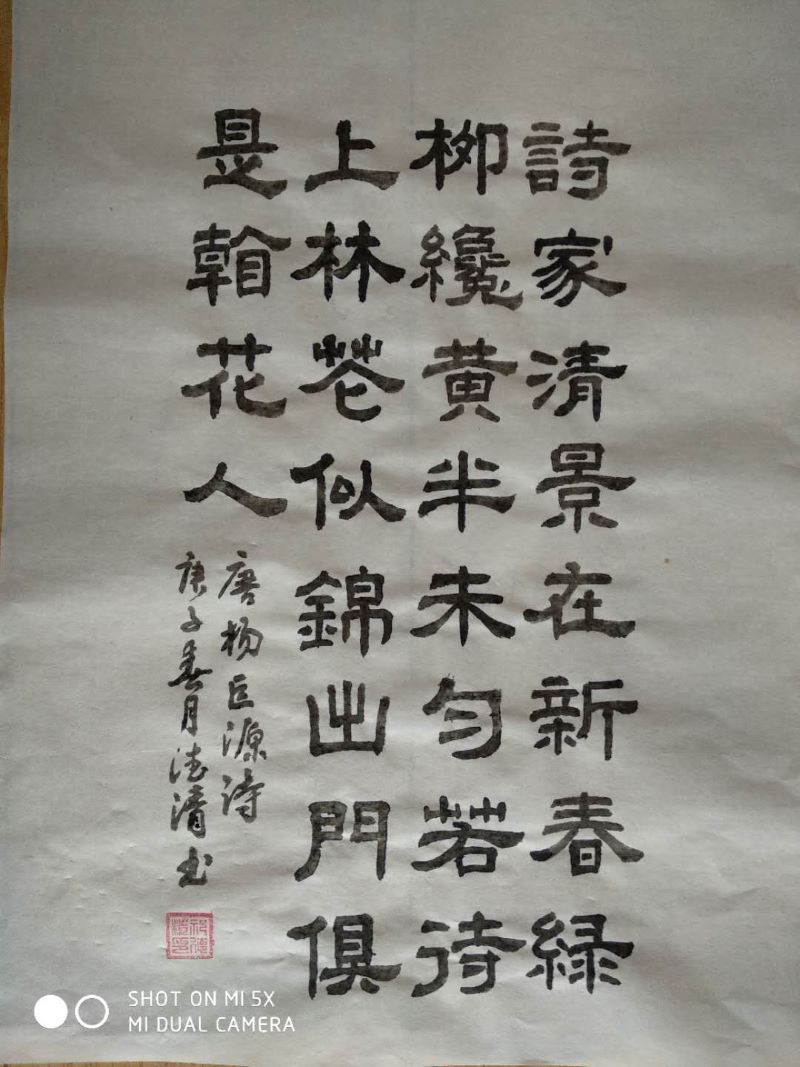 詩家清景在新春緑
柳纔黃半未勻若待
上林花似錦出門俱
是看花人
唐杨巨源诗
庚子春月德清书
SHOT ON MI 5X
MI DUAL CAMERA